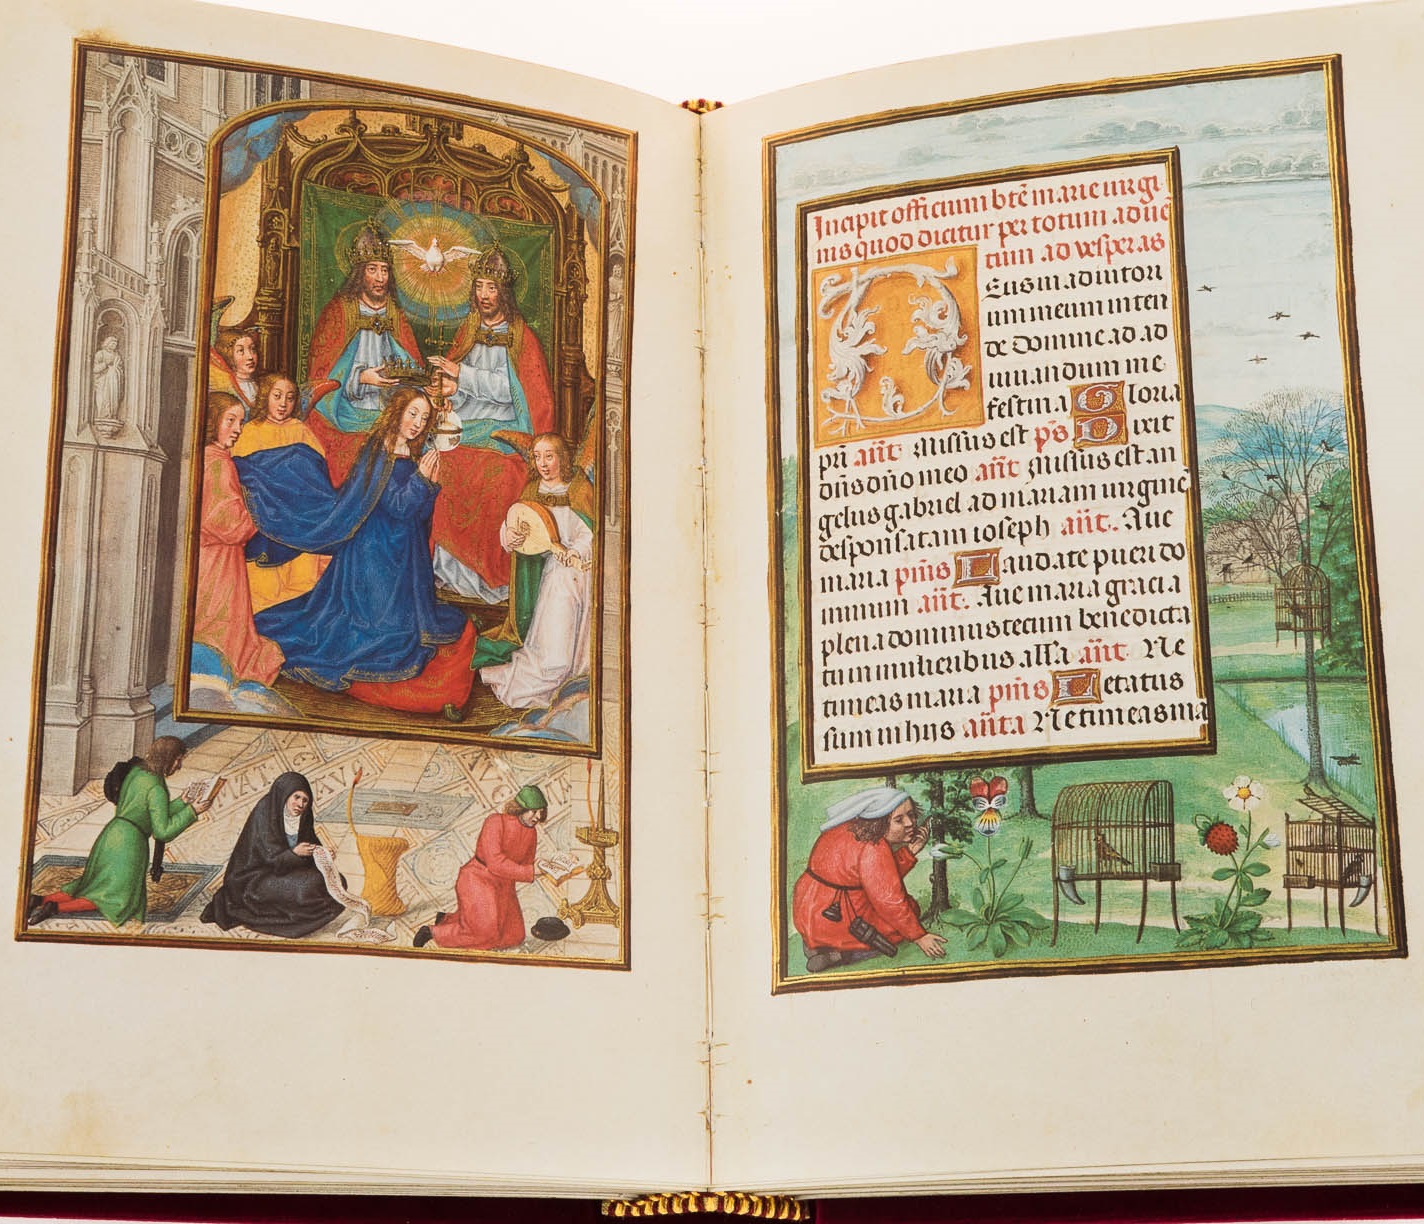 Incipit officium bt̄e marie uirgi
nis quod dicitur per totum aduē
tum ad vesperas
Deus in adiutori
um meum inten
de Domine ad ad
iuuandum me
festina Gloria
pri añt Missus est ps Dixit
dn̄s dn̄o meo añt Missus est an
gelus gabriel ad mariam uirginē
desponsatam ioseph añt. Aue
maria pm̄s Laudate pueri do
minum añt. Aue maria gracia
plena dominus tecum benedicta
tu in mulieribus alla añt Ne
timeas maria pm̄s Letatus
sum in hijs añta Ne timeas ma